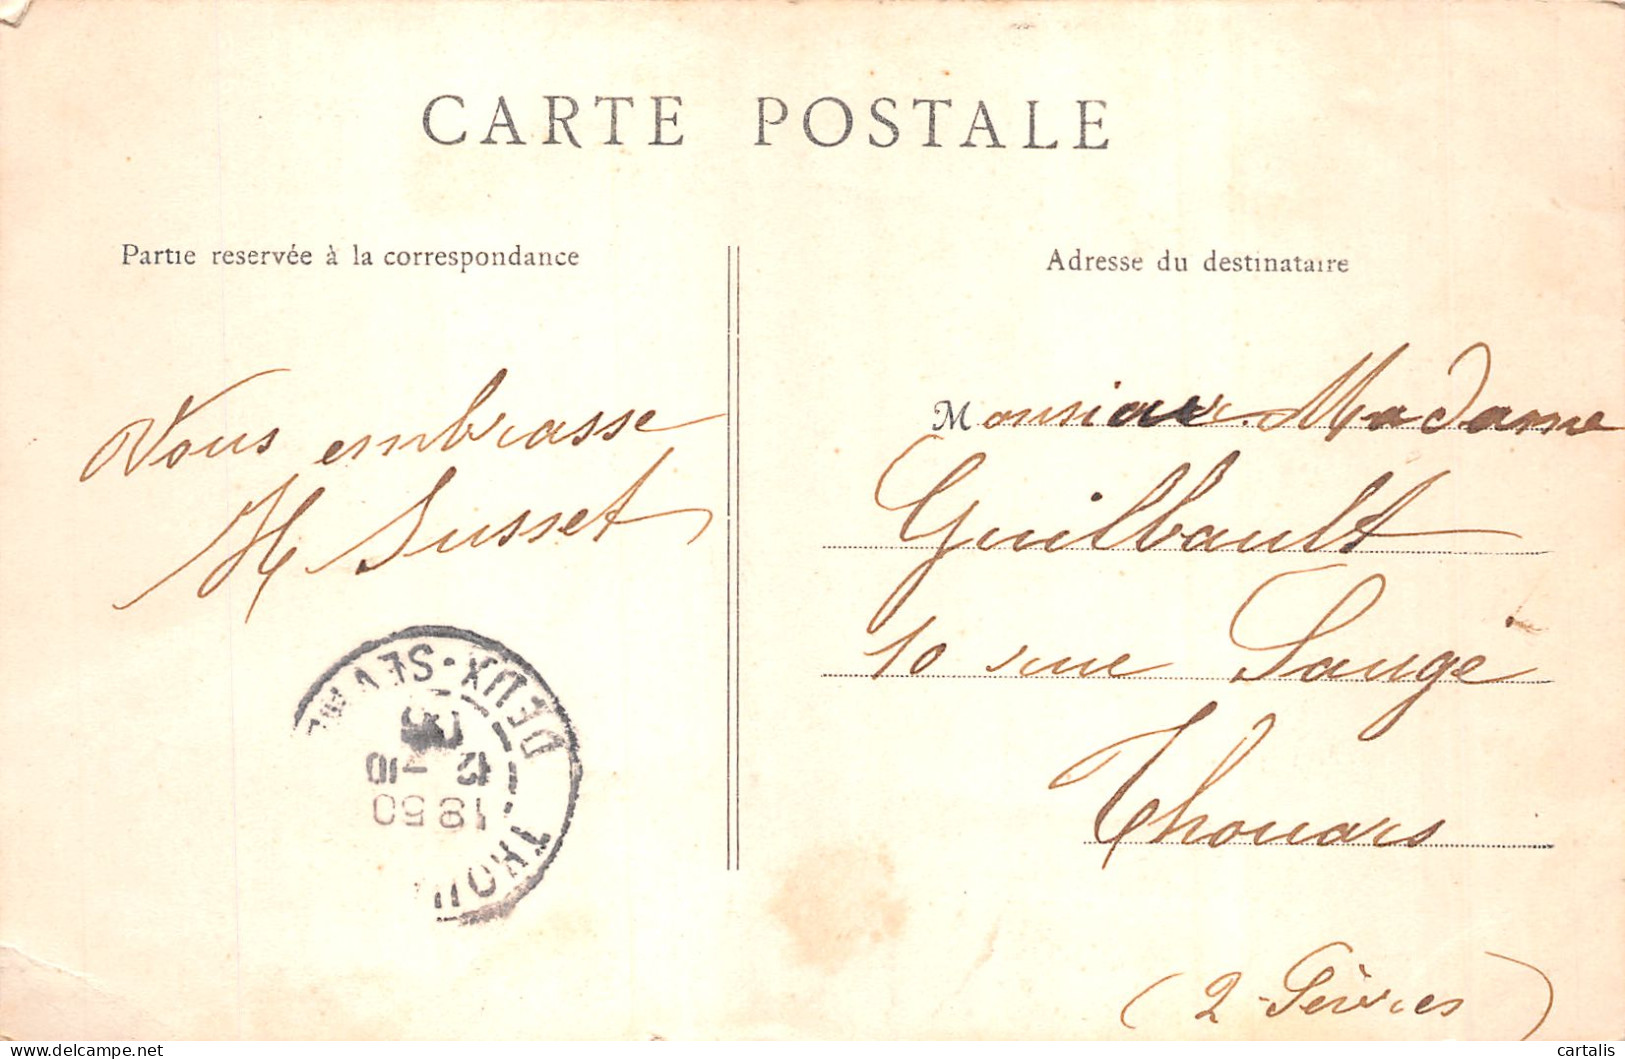 CARTE POSTALE
Partie reservée à la correspondance
Vous embrasse
H Susset
DEUX-SEVRES
12 -10
THOU
Adresse du destinataire
Monsieur Madame
Guilbault
10 rue Saugé
Thouars
(2-Sèvres)
cartalis
delcampe.net